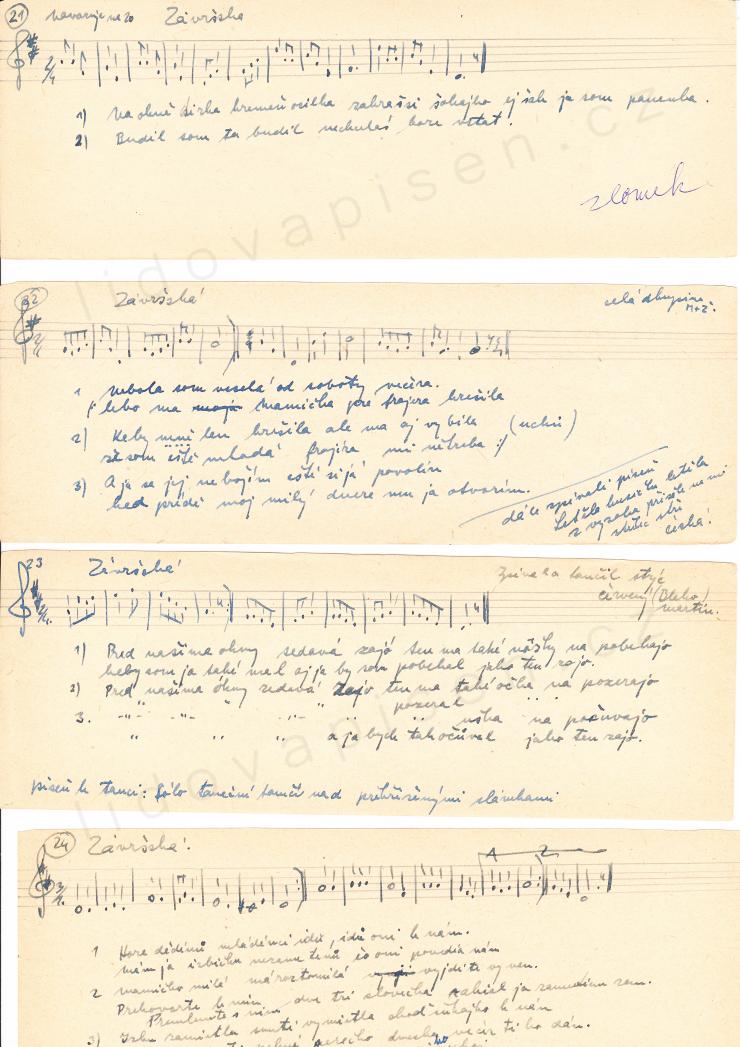 21 navazuje na 20 Závršská
2/4
1) Na ohně iskra kremeň ocilka zakrašší šohajko ej šak ja som panenka.
2) Budil som ťa budil nechcelas hore vstat.
zlomek
22 Závršská celá skupina
M+Ž.
1 Nebola som veselá od soboty večera.
/: lebo ma mamička pre frajera krešila
2) Keby mně len krešila ale ma aj vybila (uchú)
že som eště mladá frajíra mi nětreba :/
3) A ja sa jej nebojím eště si já povolím
ked príde moj milý dvere mu ja otvorím.
dále zpívali píseň
Letěla husička letěla
z vysoka
česká!
23 Závršská Zpíval a tančil strýc
červený / Blaho /
Martin.
1) Pred našima okny sedavá zajo ten ma také nôžky na pobehajo
keby som ja také mal aj ja by som pobehal jako ten zajo.
2) Pred našima okny sedavá zajo ten ma také očka na pozerajo
" " pozeral " "
3. -"- -"- -"- -"- " " uška na počuvajo
" " " " a ja bych tak očúval jako ten zajo.
píseň k tanci: Sólo taneční tančil nad prekříženými slámkami
24 Závršská.
3/4
1 Hore dědinú mládenci idú, idú oni k nám.
mám ja izbičku nezametenú čo oni povedia nám
2 mamičko milá má roztomilá vyjdite vy ven.
Prehovorte k nim dve tri slovečka zakiel ja zametiem zem.
Premluvte s nim
3) Izbu zamietla smetí vymietla chodí šuhajko k nám
dneska večír ti ho dám.